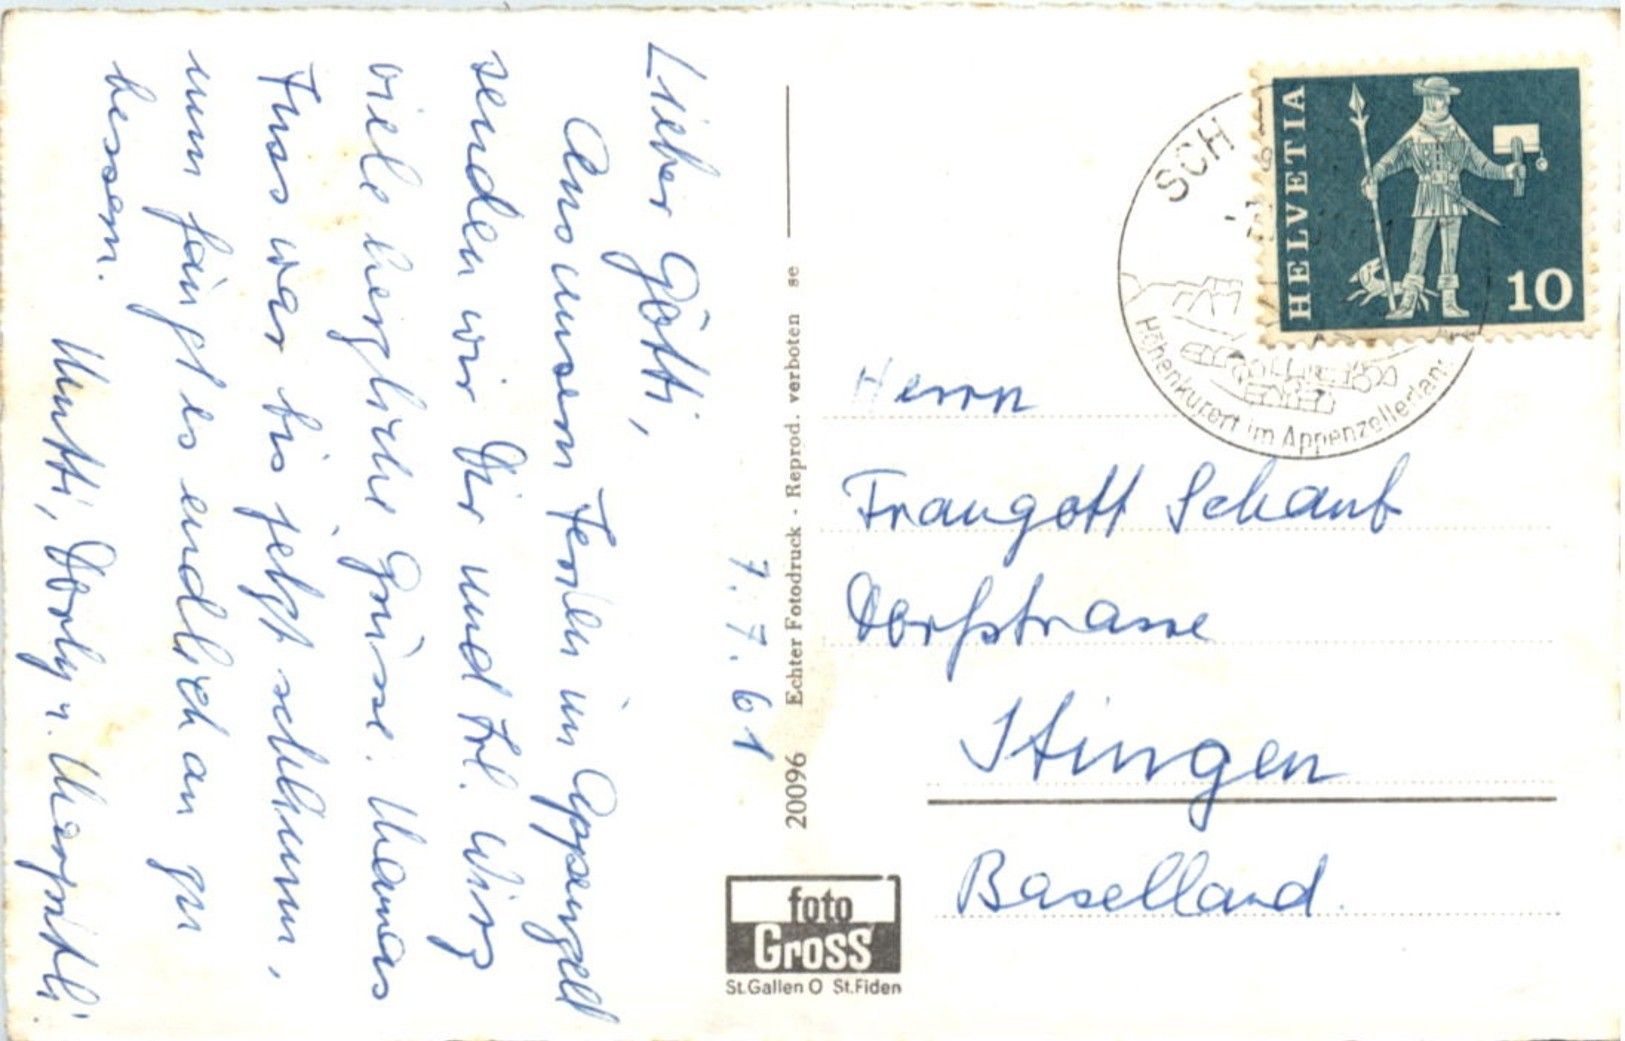 7.7.61
Lieber Götti,
Aus unsern Ferien im Appenzell
senden wir Dir und Frl. Wirz
viele herzliche Grüsse. Mamas
Fuss war bis jetzt schlimm,
nun fängt es endlich an zu
bessern.
Mutti, Dorly u. Margritli
20096 Echter Fotodruck · Reprod. verboten se
foto
Gross
St.Gallen O St.Fiden
SCH
Höhenkurort im Appenzellerland
HELVETIA
10
Herrn
Traugott Schaub
Dorfstrasse
Itingen
Baselland.